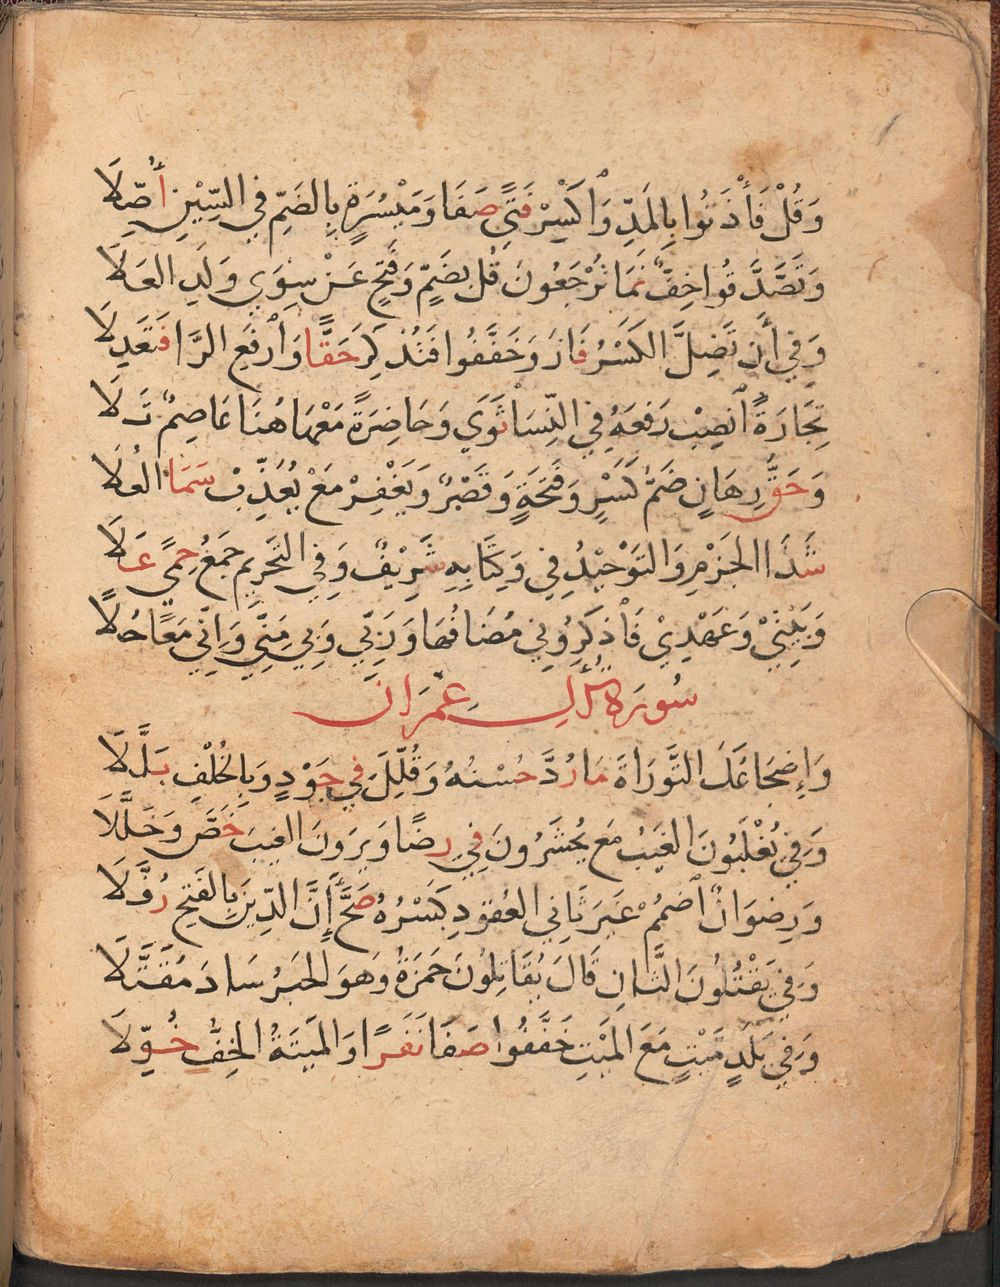 وَقُلْ فَأْذَنُوا بِالمَدِّ وَاكْسِرْ فَتًى صَفَا وَمَيْسُرَةٍ بِالضَمِّ فِي السِّيْنِ أُصِّلَا
وَتَصَّدَّقُوا خِفٌّ نَمَا تُرْجَعُونَ قُل بِضَمٍّ وَفَتْحٍ عَنْ سِوَى وَلَدِ العَلَا
وَفِي أَن تَضِلَّ الكَسْرُ فَازَ وَخَفَّفُوا فَتُذْكِرَ حَقًّا وَارْفَعِ الرَّا فَتَعْدِلَا
تِجَارَةً انْصِبْ رَفعَهُ فِي النِّسَا ثَوَى وَحَاضِرَةً مَعْهَا هُنَا عَاصِمٌ تَلَا
وَحَقُّ رِهَانٍ ضَمُّ كَسْرٍ وَفَتْحَةٍ وَقَصْرٌ وَيَغْفِرْ مَعْ يُعَذِّبْ سَمَا العُلَا
شَذَا الجَزْمِ وَالتَوْحِيْدُ فِي وَكِتَابِهِ شَرِيْفٌ وَفِي التَحْرِيمِ جَمْعُ حِمًى عَلَا
وَبَيْتِيْ وَعَهْدِيْ فَاذْكُرُونِي مُضَافُهَا وَرَبِّي وَبِي مِنِّي وَإِنِّي مَعًا حُلَا
سُورَةُ آلِ عِمْرَان
وَإِضْجَاعُكَ التَّوْرَاةَ مَا رُدَّ حُسْنُهُ وَقُلِّلَ فِي جَوْدٍ وَبِالخُلْفِ بَلَّلَا
وَفِي تُغْلَبُونَ الغَيْبُ مَع يُحْشَرُونَ فِي رِضًا وَيَرَوْنَ الغيبَ خَصَّ وَخَلَّلَا
وَرِضوَانٌ اضْمُمْ غَيرَ ثَانِي العُقودِ كَسْرُهُ صَحَّ إِنَّ الدِّينَ بِالفَتحِ رُفَّلَا
وَفِي يَقْتُلُونَ الثَّانِ قَالَ يُقَاتِلُونَ حَمزَةُ وَهوَ الحَبرُ سَادَ مُقَتَّلَا
وَفِي بَلَدٍ مَيْتٍ مَعَ المَيْتِ خَفَّفُوا صَفَا نَفَرًا وَالمَيتَةُ الخِفُّ خُوِّلَا